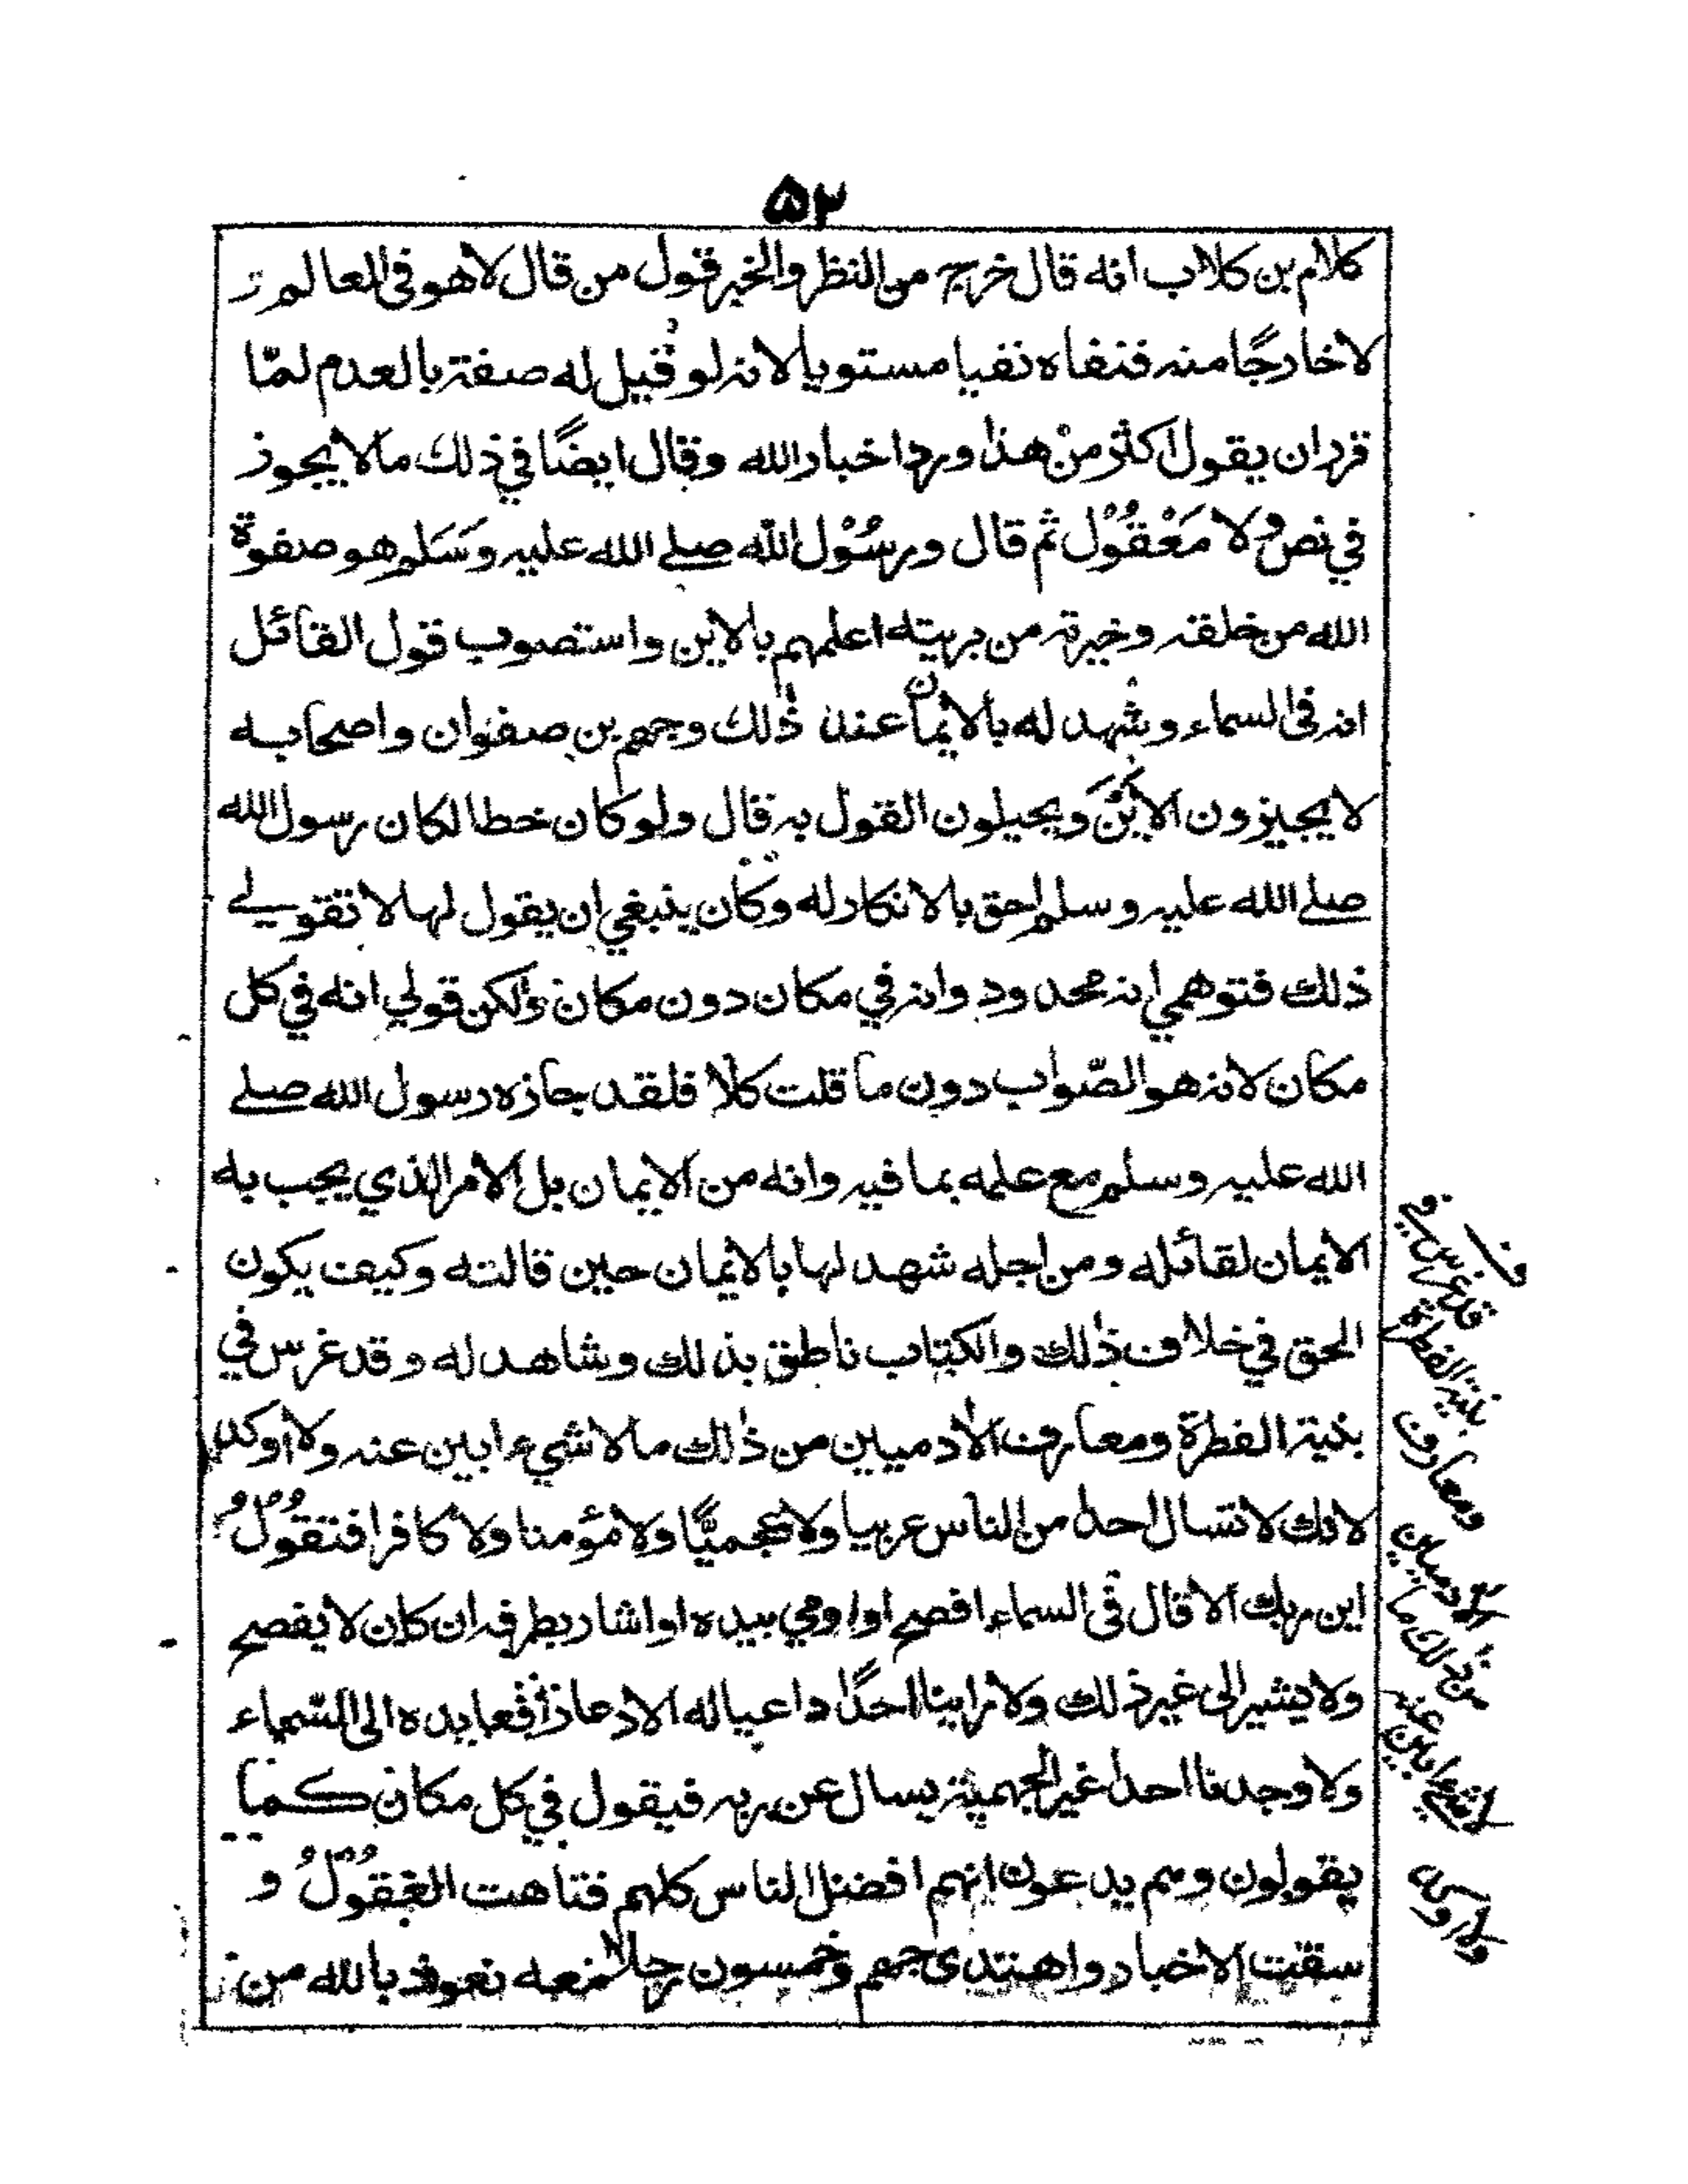 ۵۳
كلام بن كلاب انه قال خرج من النظر والخبر قول من قال لا هو في العالم
لا خارجًا منه فنفاه نفيا مستويا لانه لو قيل له صفة بالعدم لمّا
قدر ان يقول اكثر من هذا ورد اخبار الله وقال ايضًا في ذلك ما لا يجوز
في نص ولا مَعْقُوْل ثم قال ورسُوْل الله صلى الله عليه وسَلم هو صفوة
الله من خلقه وخيرته من بريته اعلمهم بالاين واستصوب قول القائل
انه في السماء وشهد له بالايمان عند ذٰلك وجهم بن صفوان واصحابه
لا يجيزون الاين ويحيلون القول به قال ولو كان خطا لكان رسول الله
صلى الله عليه وسلم احق بالانكار له وكان ينبغي ان يقول لها لا تقولي
ذلك فتوهمي انه محدود وانه في مكان دون مكان ولكن قولي انه في كل
مكان لانه هو الصّواب دون ما قلت كلا فلقد جازه رسول الله صلى
الله عليه وسلم مع علمه بما فيه وانه من الايمان بل الامر الذي يجب به
الايمان لقائله ومن اجله شهد لها بالايمان حين قالته وكيف يكون
الحق في خلاف ذٰلك والكتاب ناطق بذلك وشاهد له وقد غرس في
بنية الفطرة ومعارف الادميين من ذٰلك ما لا شيء ابين عنه ولا اوكد
لانك لا تسال احدا من الناس عربيا ولا عجميًّا ولا مؤمنا ولا كافرا فتقُوْلُ
اين ربك الا قال في السماء افصح او اومي بيده او اشار بطرفه ان كان لا يفصح
ولا يشير الى غير ذلك ولا راينا احدًا داعيا له الا رافعا يده الى السّماء
ولا وجدنا احدا غير الجهمية يسال عن ربه فيقول في كل مكان كما
يقولون وهم يدعون انهم افضل الناس كلهم فتاهت العقُوْلُ و
سقت الاخبار واهتدى جهم وخمسون رجلا معه نعوذ بالله من
قد غرس في
بنية الفطرة
ومعارف
الادميين
من ذلك ما
لا شيء ابين عنه
ولا اوكد